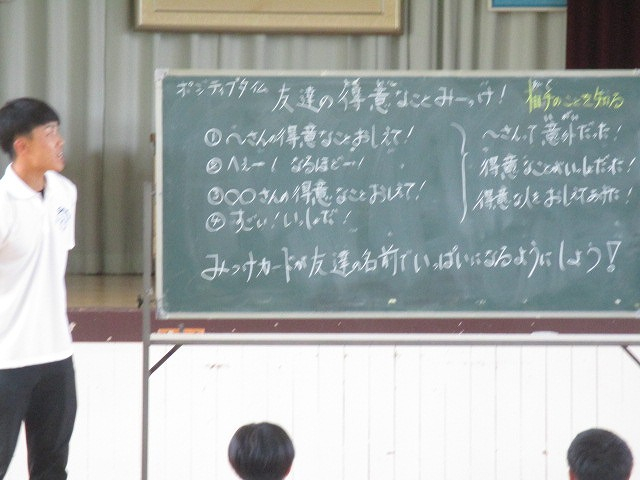 ポジティブタイム
友達の得意なことみーっけ!
相手のことを知る
①〜さんの得意なことおしえて!
②へぇー!なるほどー!
③○○さんの得意なことおしえて!
④すごい!いっしょだ!
〜さんって意外だった!
得意なことがいっしょだった!
得意な人をおしえてあげた!
みっけカードが友達の名前でいっぱいになるようにしよう!